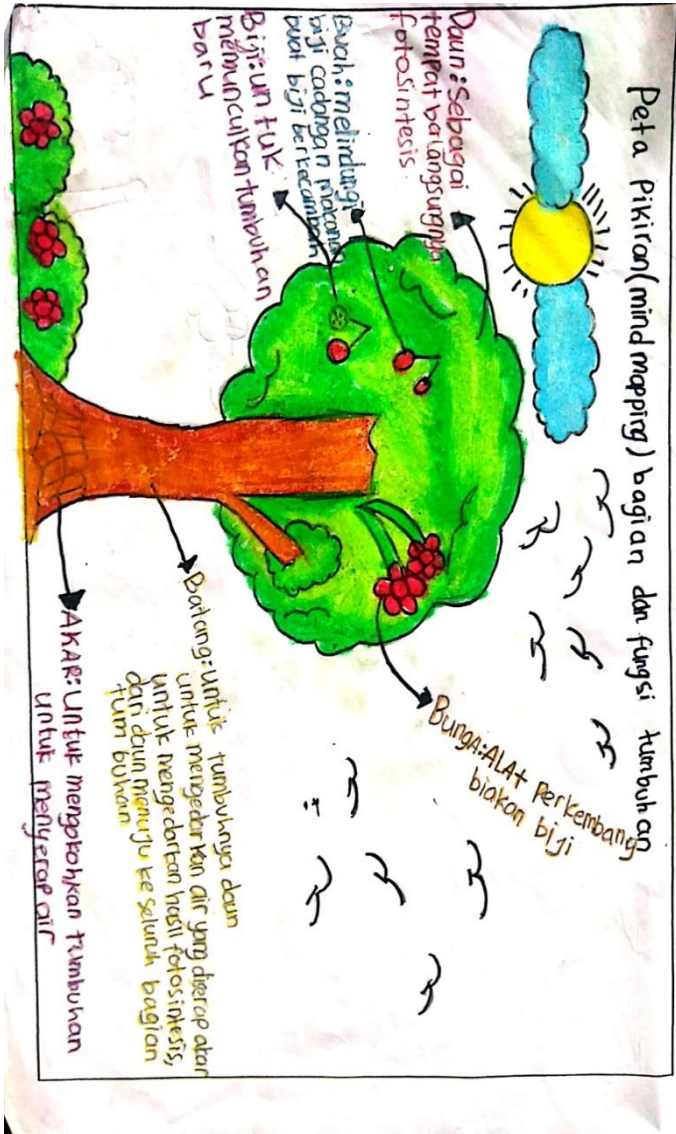 Peta Pikiran (mind mapping) bagian dan fungsi tumbuhan
Daun: Sebagai
tempat balangsungnya
fotosintesis
Buah: melindungi
biji cadangan makanan
buat biji berkecambah
Biji: untuk
memunculkan tumbuhan
baru
BungA: ALAt Perkembang
biakan biji
Batang: untuk tumbuhnya daun
untuk mengedarkan air yang diserap akar
untuk mengedarkan hasil fotosintesis,
dari daun menuju ke seluruh bagian
tumbuhan
AKAR: Untuk mengokohkan tumbuhan
untuk menyerap air